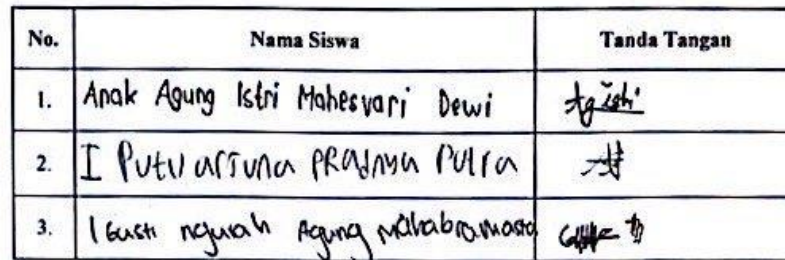 No. Nama Siswa Tanda Tangan
1. Anak Agung Istri Mahesvari Dewi
2. I Putu arjuna PRadnya Putra
3. I Gusti ngurah Agung Mahabramasta